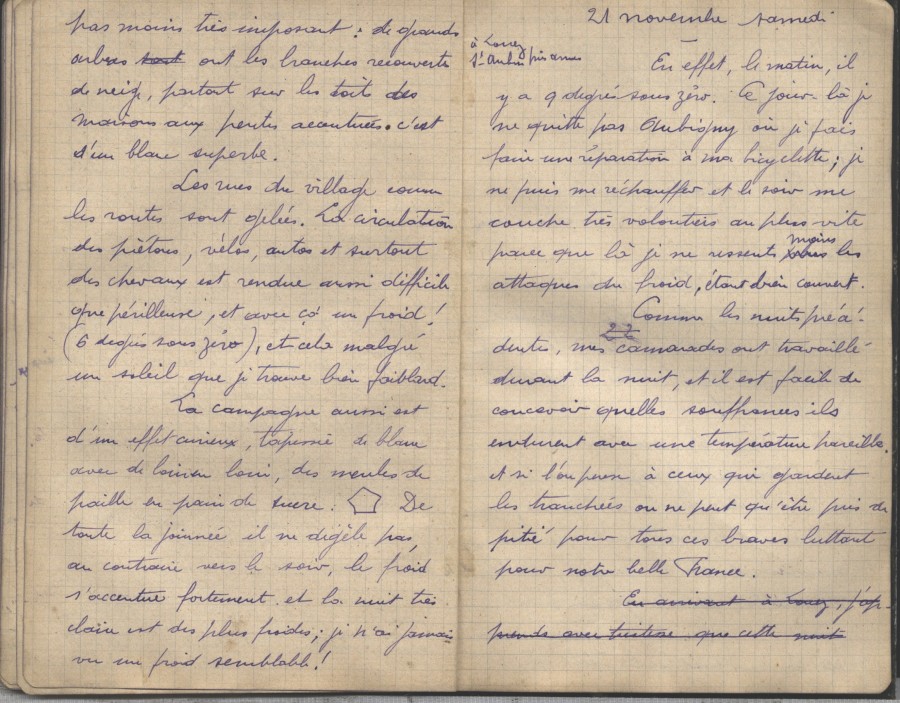 pas moins très imposant : de grands
arbres sont ont les branches recouvertes
de neige, partout sur les toits des
maisons aux pentes accentuées. c'est
d'un blanc superbe.
Les rues du village comme
les routes sont gelées. La circulation
des piétons, vélos, autos et surtout
des chevaux est rendue aussi difficile
que périlleuse, et avec ça un froid !
(6 degrés sous zéro), et cela malgré
un soleil que je trouve bien faiblard.
La campagne aussi est
d'un effet curieux, tapissée de blanc
avec de loin en loin, des meules de
paille en pain de sucre. De
toute la journée il ne dégèle pas,
au contraire vers le soir, le froid
s'accentue fortement et la nuit très
claire est des plus froides ; je n'ai jamais
vu un froid semblable !
21 novembre samedi
à Louez
St Aubin
En effet, le matin, il
y a 9 degrés sous zéro. Ce jour-là je
ne quitte pas Aubigny où je fais
faire une réparation à ma bicyclette ; je
ne puis me réchauffer et le soir me
couche très volontiers au plus vite
moins
parce que là je ne ressents les
attaques du froid, étant bien couvert.
Comme les nuits précé-
22
dentes, mes camarades ont travaillé
durant la nuit, et il est facile de
concevoir quelles souffrances ils
endurent avec une température pareille.
et si l'on pense à ceux qui gardent
les tranchées on ne peut qu'être pris de
pitié pour tous ces braves luttant
pour notre belle France.
En arrivant à Louez, j'ap-
prends avec tristesse que cette nuit